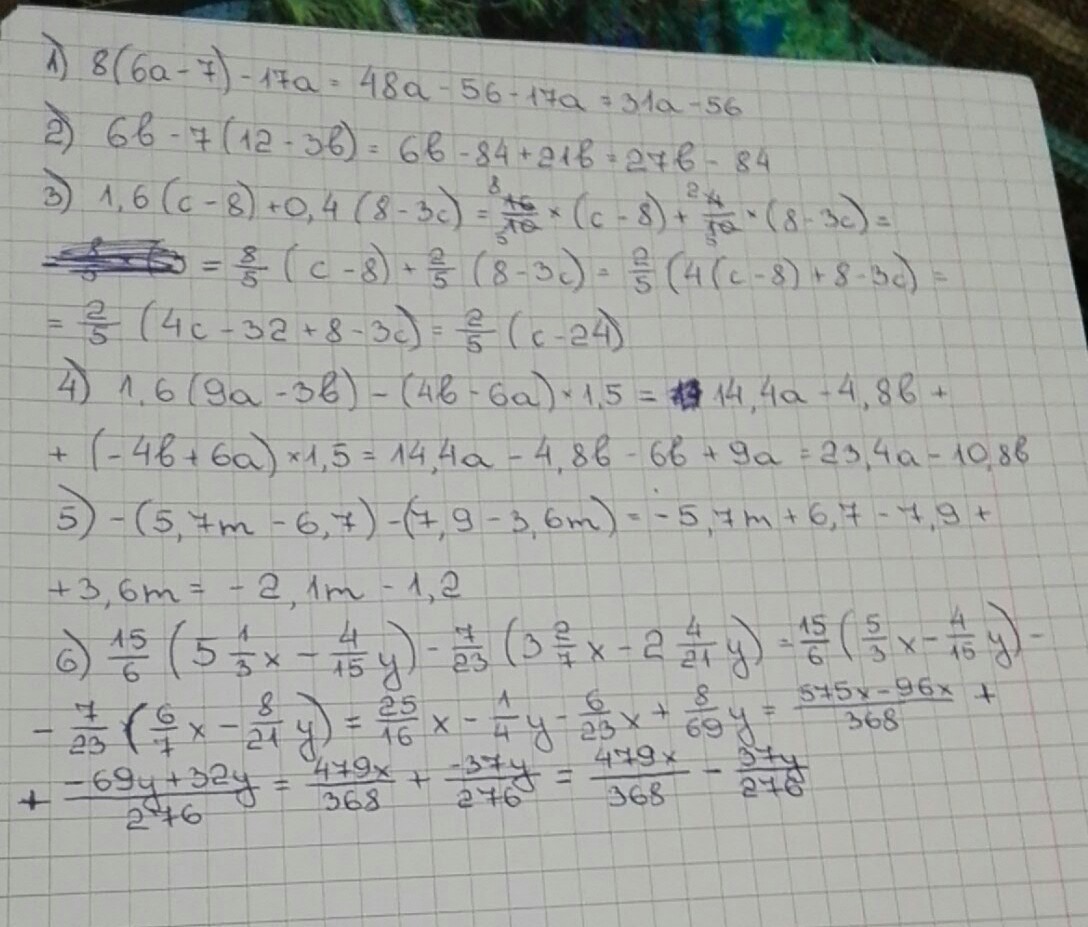 1) 8(6a - 7) - 17a = 48a - 56 - 17a = 31a - 56
2) 6b - 7(12 - 3b) = 6b - 84 + 21b = 27b - 84
3) 1,6(c - 8) + 0,4(8 - 3c) = 16/10 × (c - 8) + 4/10 × (8 - 3c) =
= 8/5 (c - 8) + 2/5 (8 - 3c) = 2/5 (4(c - 8) + 8 - 3c) =
= 2/5 (4c - 32 + 8 - 3c) = 2/5 (c - 24)
4) 1,6(9a - 3b) - (4b - 6a) × 1,5 = 14,4a - 4,8b +
+ (-4b + 6a) × 1,5 = 14,4a - 4,8b - 6b + 9a = 23,4a - 10,8b
5) -(5,7m - 6,7) - (7,9 - 3,6m) = -5,7m + 6,7 - 7,9 +
+ 3,6m = -2,1m - 1,2
6) 15/6 (5 1/3 x - 4/15 y) - 7/23 (3 2/7 x - 2 4/21 y) = 15/6 (5/3 x - 4/15 y) -
- 7/23 (6/7 x - 8/21 y) = 25/16 x - 1/4 y - 6/23 x + 8/69 y = 575x - 96x/368 +
+ -69y + 32y/276 = 479x/368 + -37y/276 = 479x/368 - 37y/276